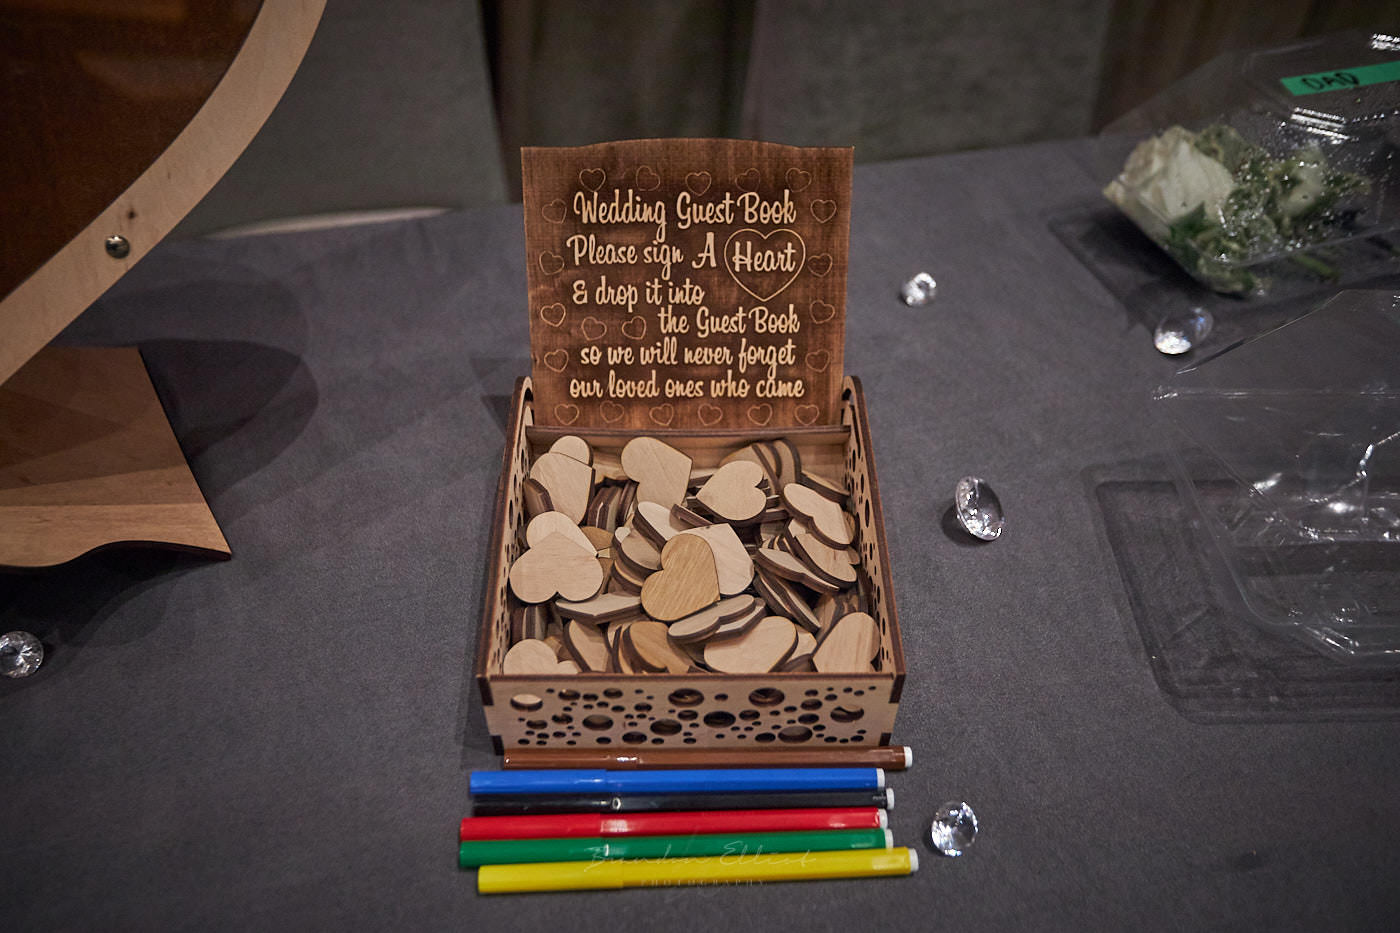 DAD
Wedding Guest Book
Please sign A Heart
& drop it into
the Guest Book
so we will never forget
our loved ones who came
Brandon Elliot
PHOTOGRAPHY